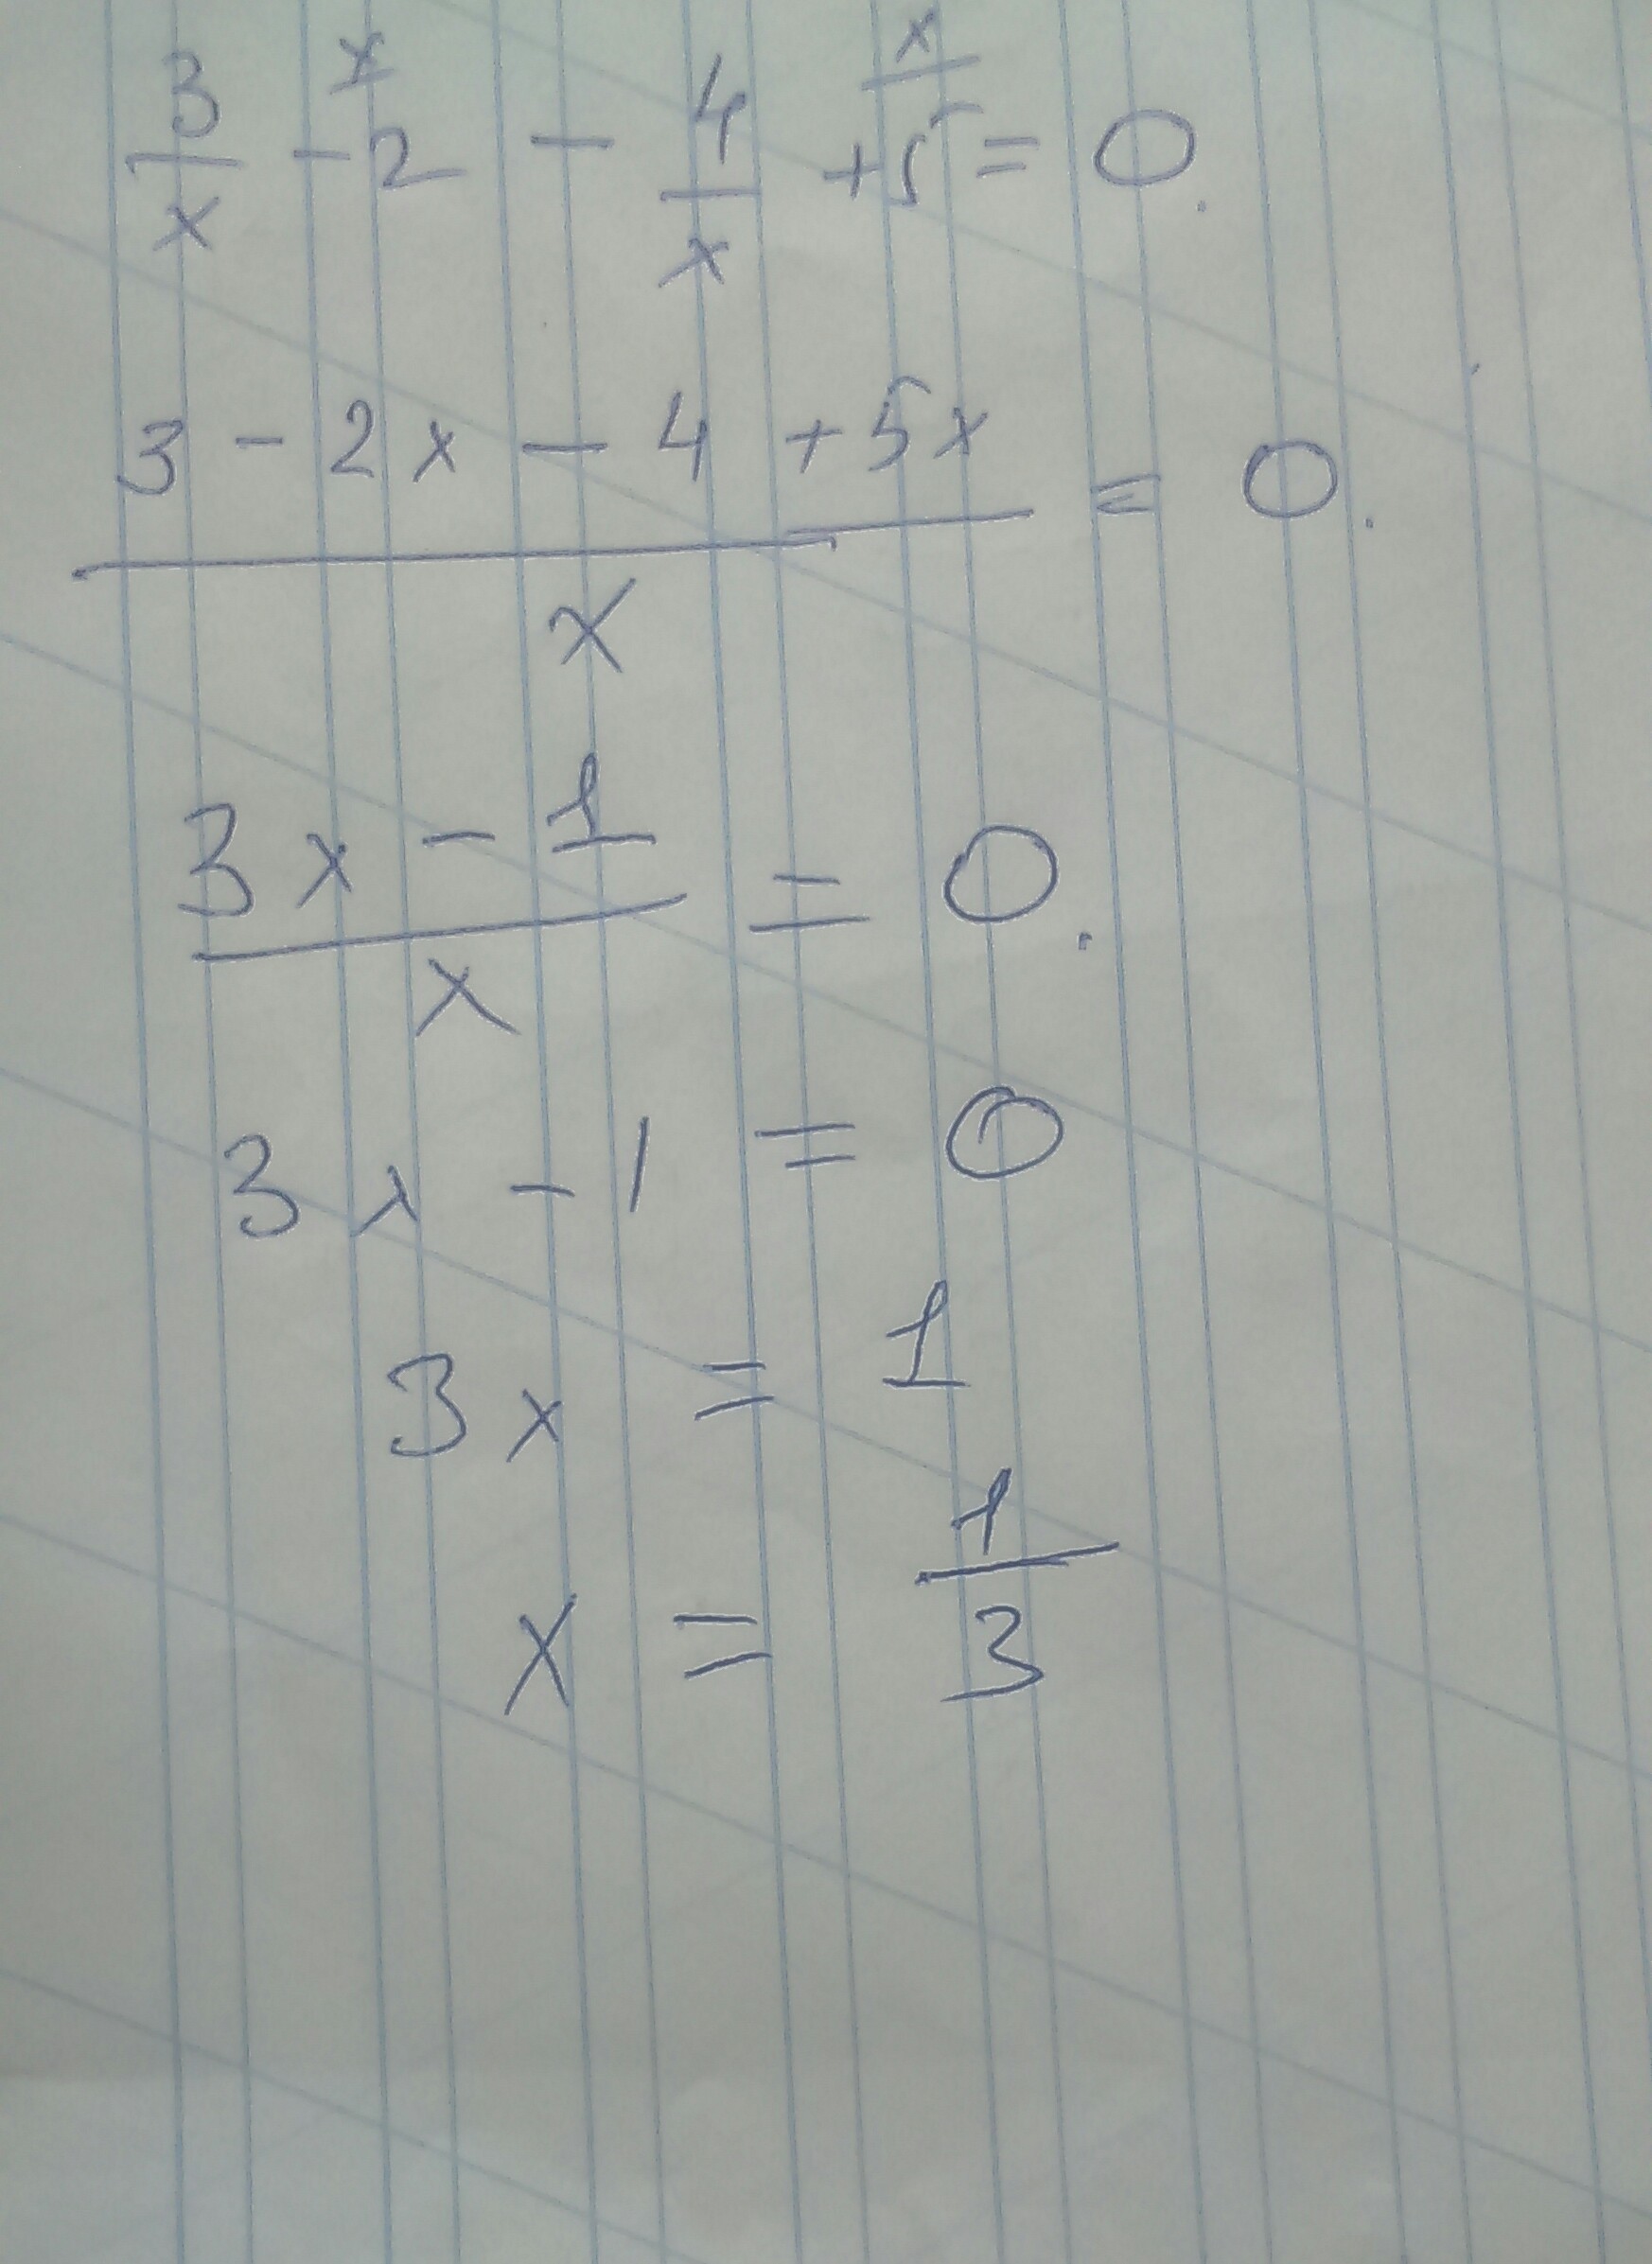 3/x - 2^x/ - 4/x + 5^x/ = 0.
(3 - 2x - 4 + 5x)/x = 0.
(3x - 1)/x = 0.
3x - 1 = 0
3x = 1
x = 1/3